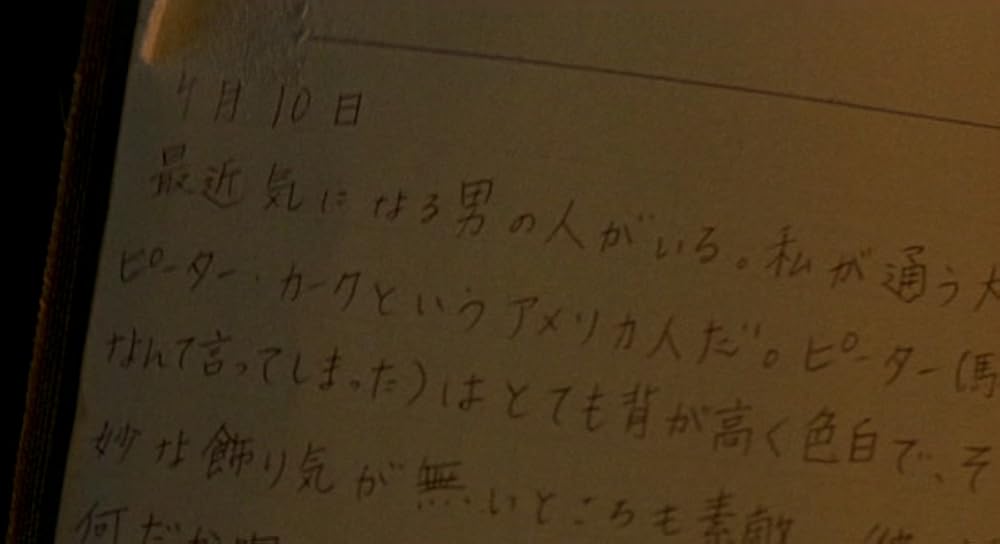 4月10日
最近気になる男の人がいる。私が通う大
ピーター・カークというアメリカ人だ。ピーター(馬
なんて言ってしまった)はとても背が高く色白で、そ
妙な飾り気が無いところも素敵
何だか